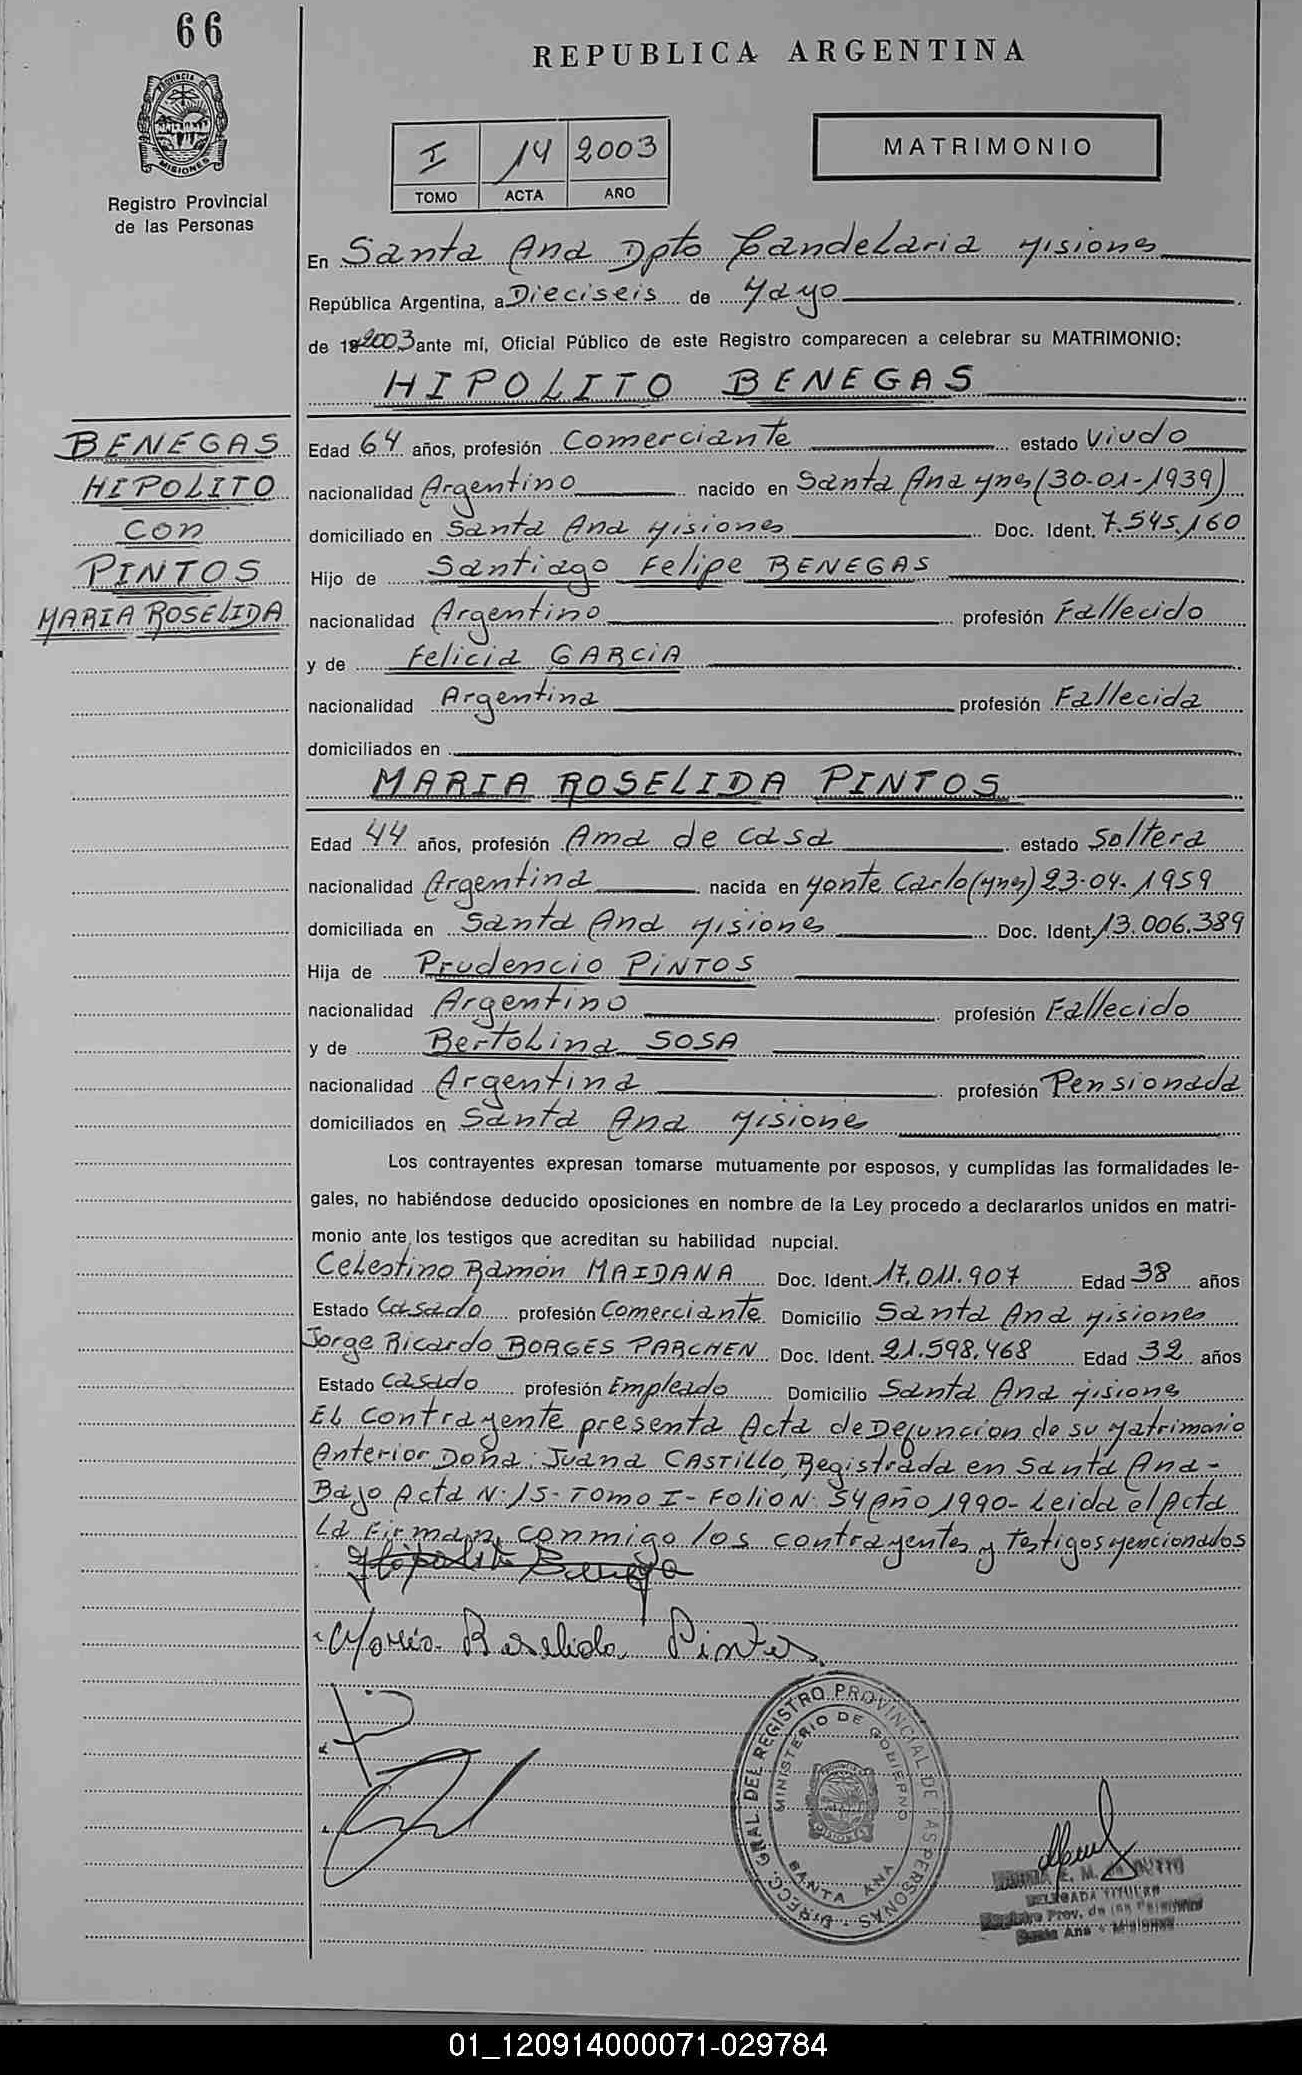 66
PROVINCIA DE
MISIONES
Registro Provincial
de las Personas
REPUBLICA ARGENTINA
I 14 2003
TOMO ACTA AÑO
MATRIMONIO
En Santa Ana Dpto Candelaria Misiones
República Argentina, a Dieciseis de Mayo
de 19 2003 ante mí, Oficial Público de este Registro comparecen a celebrar su MATRIMONIO:
HIPOLITO BENEGAS
BENEGAS
HIPOLITO
CON
PINTOS
MARIA ROSELIDA
Edad 64 años, profesión Comerciante estado Viudo
nacionalidad Argentino nacido en Santa Ana Mnes (30-01-1939)
domiciliado en Santa Ana Misiones Doc. Ident. 7.545.160
Hijo de Santiago Felipe BENEGAS
nacionalidad Argentino profesión Fallecido
y de Felicia GARCIA
nacionalidad Argentina profesión Fallecida
domiciliados en
MARIA ROSELIDA PINTOS
Edad 44 años, profesión Ama de casa estado Soltera
nacionalidad Argentina nacida en Monte Carlo (Mnes) 23-04-1959
domiciliada en Santa Ana Misiones Doc. Ident. 13.006.389
Hija de Prudencio PINTOS
nacionalidad Argentino profesión Fallecido
y de Bertolina SOSA
nacionalidad Argentina profesión Pensionada
domiciliados en Santa Ana Misiones
Los contrayentes expresan tomarse mutuamente por esposos, y cumplidas las formalidades le-
gales, no habiéndose deducido oposiciones en nombre de la Ley procedo a declararlos unidos en matri-
monio ante los testigos que acreditan su habilidad nupcial.
Celestino Ramón MAIDANA Doc. Ident. 17.011.907 Edad 38 años
Estado Casado profesión Comerciante Domicilio Santa Ana Misiones
Jorge Ricardo BORGES PARCHEN Doc. Ident. 21.598.468 Edad 32 años
Estado Casado profesión Empleado Domicilio Santa Ana Misiones
El Contrayente presenta Acta de Defuncion de su Matrimonio
Anterior Doña: Juana CASTILLO, Registrada en Santa Ana-
Bajo Acta N: 15- Tomo I- FolioN: 54 Año 1990- Leida el Acta
La Firman conmigo los contrayentes y Testigos Mencionados
Hipolito Benega
Maria Roselida Pintos
DIRECC. GRAL. DEL REGISTRO PROVINCIAL DE LAS PERSONAS
MINISTERIO DE GOBIERNO
SANTA ANA
E. M.
DELEGADA TITULAR
Registro Prov. de las Personas
Santa Ana - Misiones
01_120914000071-029784